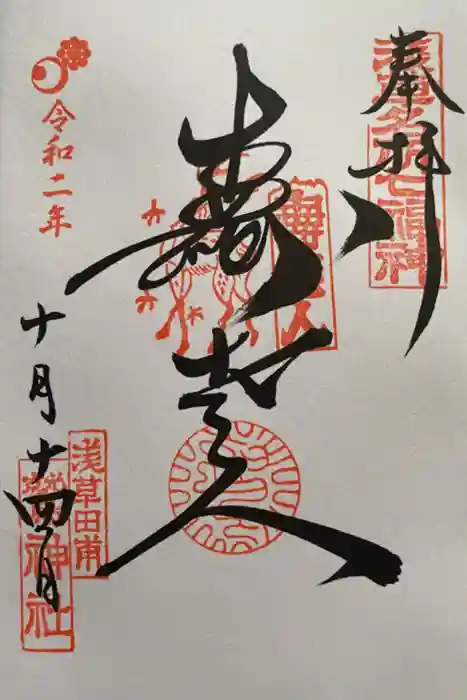 奉拝
浅草名所七福神
壽老人
令和二年
十月十四日
浅草田甫
鷲神社